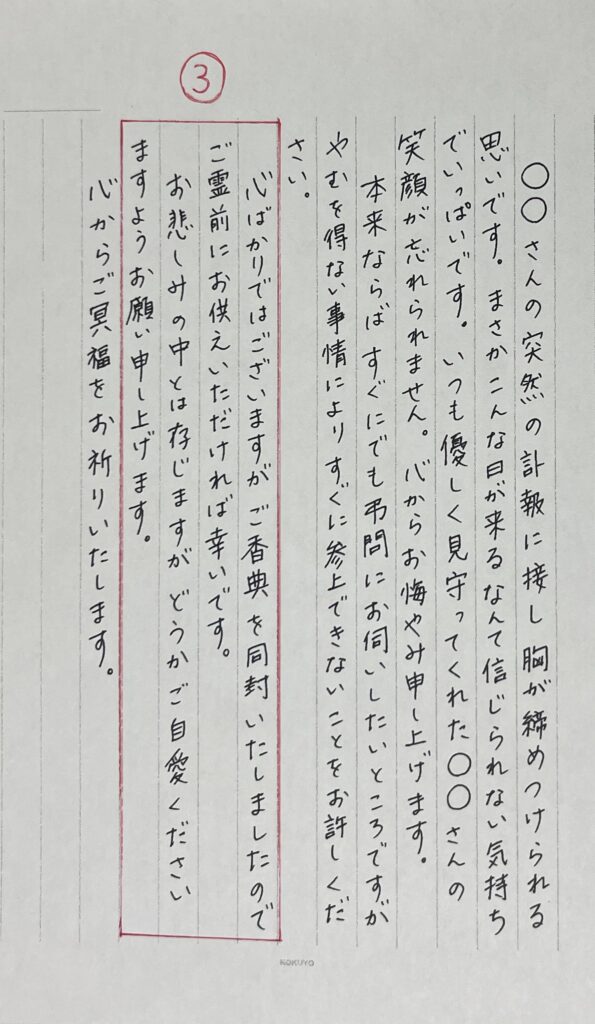 ③
○○さんの突然の訃報に接し胸が締めつけられる
思いです。まさかこんな日が来るなんて信じられない気持ち
でいっぱいです。いつも優しく見守ってくれた○○さんの
笑顔が忘れられません。心からお悔やみ申し上げます。
本来ならばすぐにでも弔問にお伺いしたいところですが
やむを得ない事情によりすぐに参上できないことをお許しくだ
さい。
心ばかりではございますがご香典を同封いたしましたので
ご霊前にお供えいただければ幸いです。
お悲しみの中とは存じますがどうかご自愛ください
ますようお願い申し上げます。
心からご冥福をお祈りいたします。
KOKUYO